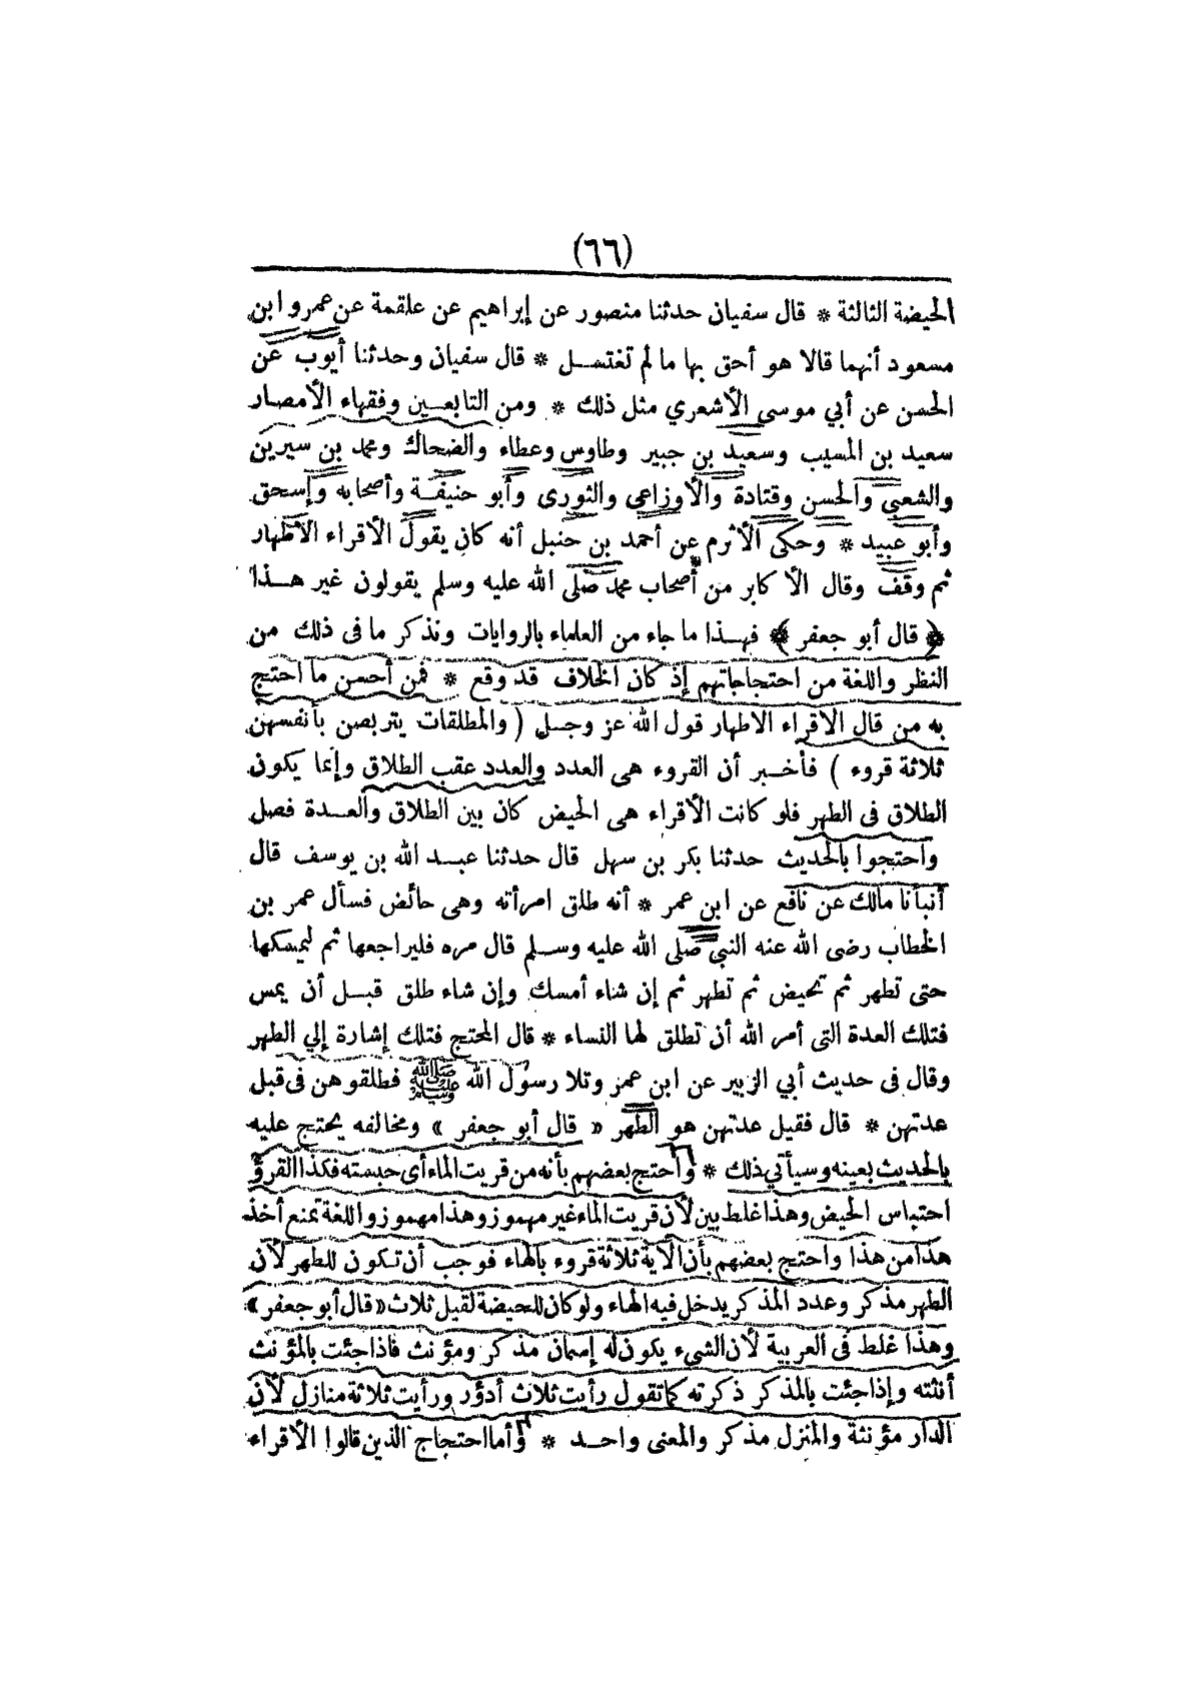 (٦٦)
الحيضة الثالثة * قال سفيان حدثنا منصور عن إبراهيم عن علقمة عن عمر وابن
مسعود أنهما قالا هو أحق بها ما لم تغتسل * قال سفيان وحدثنا أيوب عن
الحسن عن أبي موسى الأشعري مثل ذلك * ومن التابعين وفقهاء الأمصار
سعيد بن المسيب وسعيد بن جبير وطاوس وعطاء والضحاك ومحمد بن سيرين
والشعبى والحسن وقتادة والأوزاعى والثورى وأبو حنيفة وأصحابه وإسحق
وأبو عبيد * وحكى الأثرم عن أحمد بن حنبل أنه كان يقول الأقراء الاطهار
ثم وقف وقال الأكابر من أصحاب محمد صلى الله عليه وسلم يقولون غير هذا
﴿ قال أبو جعفر ﴾ فهذا ما جاء من العلماء بالروايات ونذكر ما فى ذلك من
النظر واللغة من احتجاجاتهم إذ كان الخلاف قد وقع * فمن أحسن ما احتج
به من قال الاقراء الاطهار قول الله عز وجل ( والمطلقات يتربصن بأنفسهن
ثلاثة قروء ) فأخبر أن القروء هى العدد والعدد عقب الطلاق وإنما يكون
الطلاق فى الطهر فلو كانت الأقراء هى الحيض كان بين الطلاق والعدة فصل
واحتجوا بالحديث حدثنا بكر بن سهل قال حدثنا عبد الله بن يوسف قال
أنبأنا مالك عن نافع عن ابن عمر * أنه طلق امرأته وهى حائض فسأل عمر بن
الخطاب رضى الله عنه النبى صلى الله عليه وسلم قال مره فليراجعها ثم ليمسكها
حتى تطهر ثم تحيض ثم تطهر ثم إن شاء أمسك وإن شاء طلق قبل أن يمس
فتلك العدة التى أمر الله أن تطلق لها النساء * قال المحتج فتلك إشارة إلي الطهر
وقال فى حديث أبي الزبير عن ابن عمر وتلا رسول الله ﷺ فطلقوهن فى قبل
عدتهن * قال فقيل عدتهن هو الطهر « قال أبو جعفر » ومخالفه يحتج عليه
بالحديث بعينه وسيأتي ذلك * واحتج بعضهم بأنه من قريت الماء أى حبسته فكذا القرؤ
احتباس الحيض وهذا غلط بين لأن قريت الماء غير مهموز وهذا مهموز واللغة تمنع أخذ
هذا من هذا واحتج بعضهم بأن الآية ثلاثة قروء بالهاء فوجب أن تكون للطهر لأن
الطهر مذكر وعدد المذكر يدخل فيه الهاء ولو كان للحيضة لقيل ثلاث « قال أبو جعفر »
وهذا غلط فى العربية لأن الشيء يكون له إسمان مذكر ومؤنث فاذا جئت بالمؤنث
أنثته وإذا جئت بالمذكر ذكرته كما تقول رأيت ثلاث أدؤر ورأيت ثلاثة منازل لأن
الدار مؤنثة والمنزل مذكر والمعنى واحد * وأما احتجاج الذين قالوا الأقراء